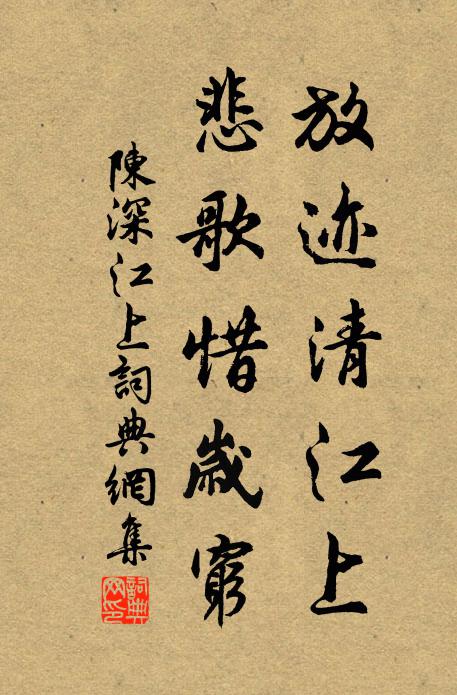 放迹清江上
悲歌惜歲窮
陳深江上詞典網集
詞典
网印